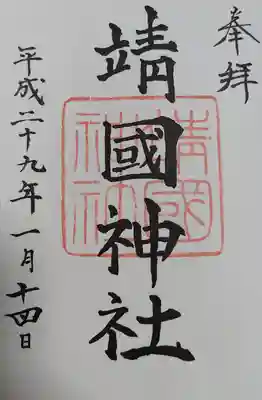 奉拝
靖國神社
靖國神社
平成二十九年一月十四日